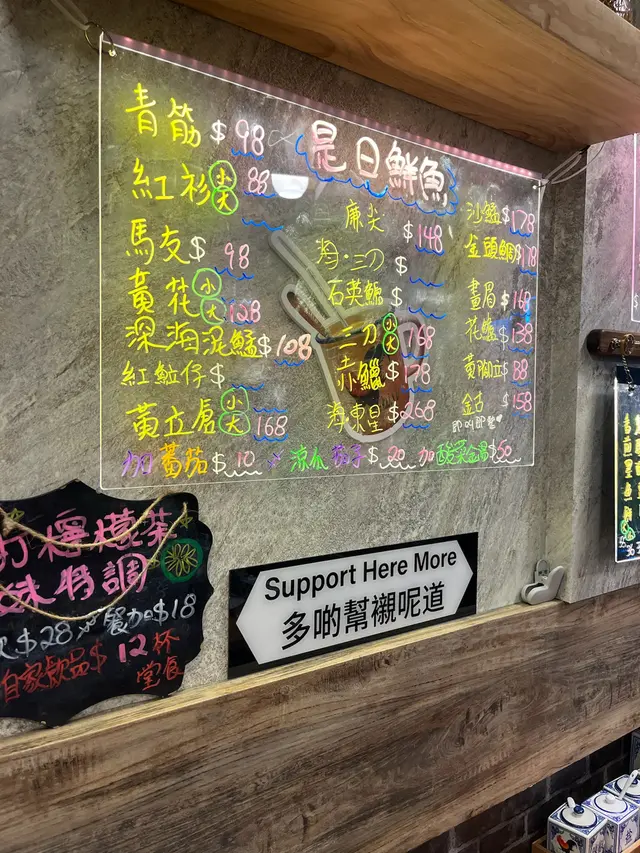 是日鮮魚
青筋 $98
紅衫 小 大 88
馬友 $98
黃花 小 大 128
深海泥鯭 $108
紅魚立仔 $
黃立倉 小 大 168
廉尖 $148
三刀 $
石英䱽 $
三刀 小 大 $168
海東星 $268
沙鯭 $178
金頭鯛 $178
畫眉 $168
花鱸 $138
黃腳立 $88
金古 $158
加蕃茄 $10 涼瓜茄子 $20 加酸菜金湯 $50
打檸檬茶
特調
飲 $28 餐加 $18
自家飲品 $12杯
堂食
Support Here More
多啲幫襯呢道